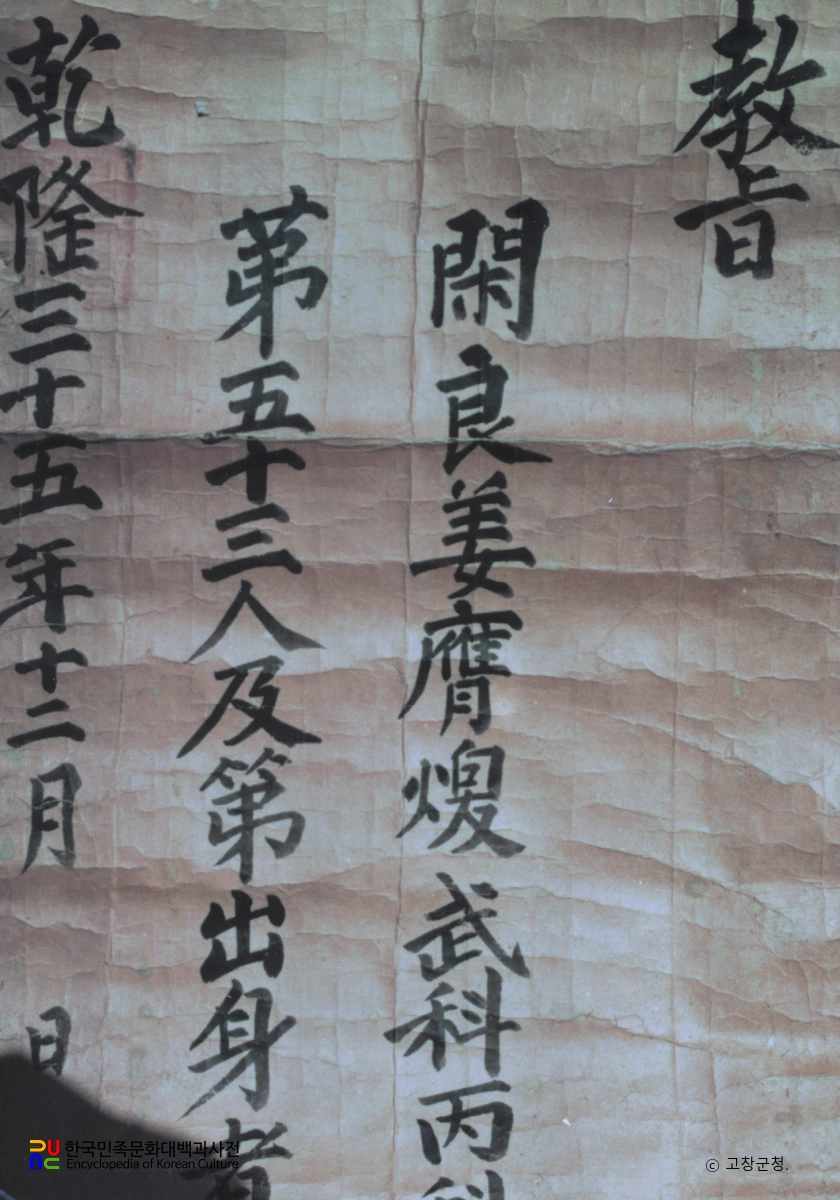 教旨
閑良姜膺煥武科丙科
第五十三人及第出身者
乾隆三十五年十二月 日
한국민족문화대백과사전
Encyclopedia of Korean Culture
© 고창군청.